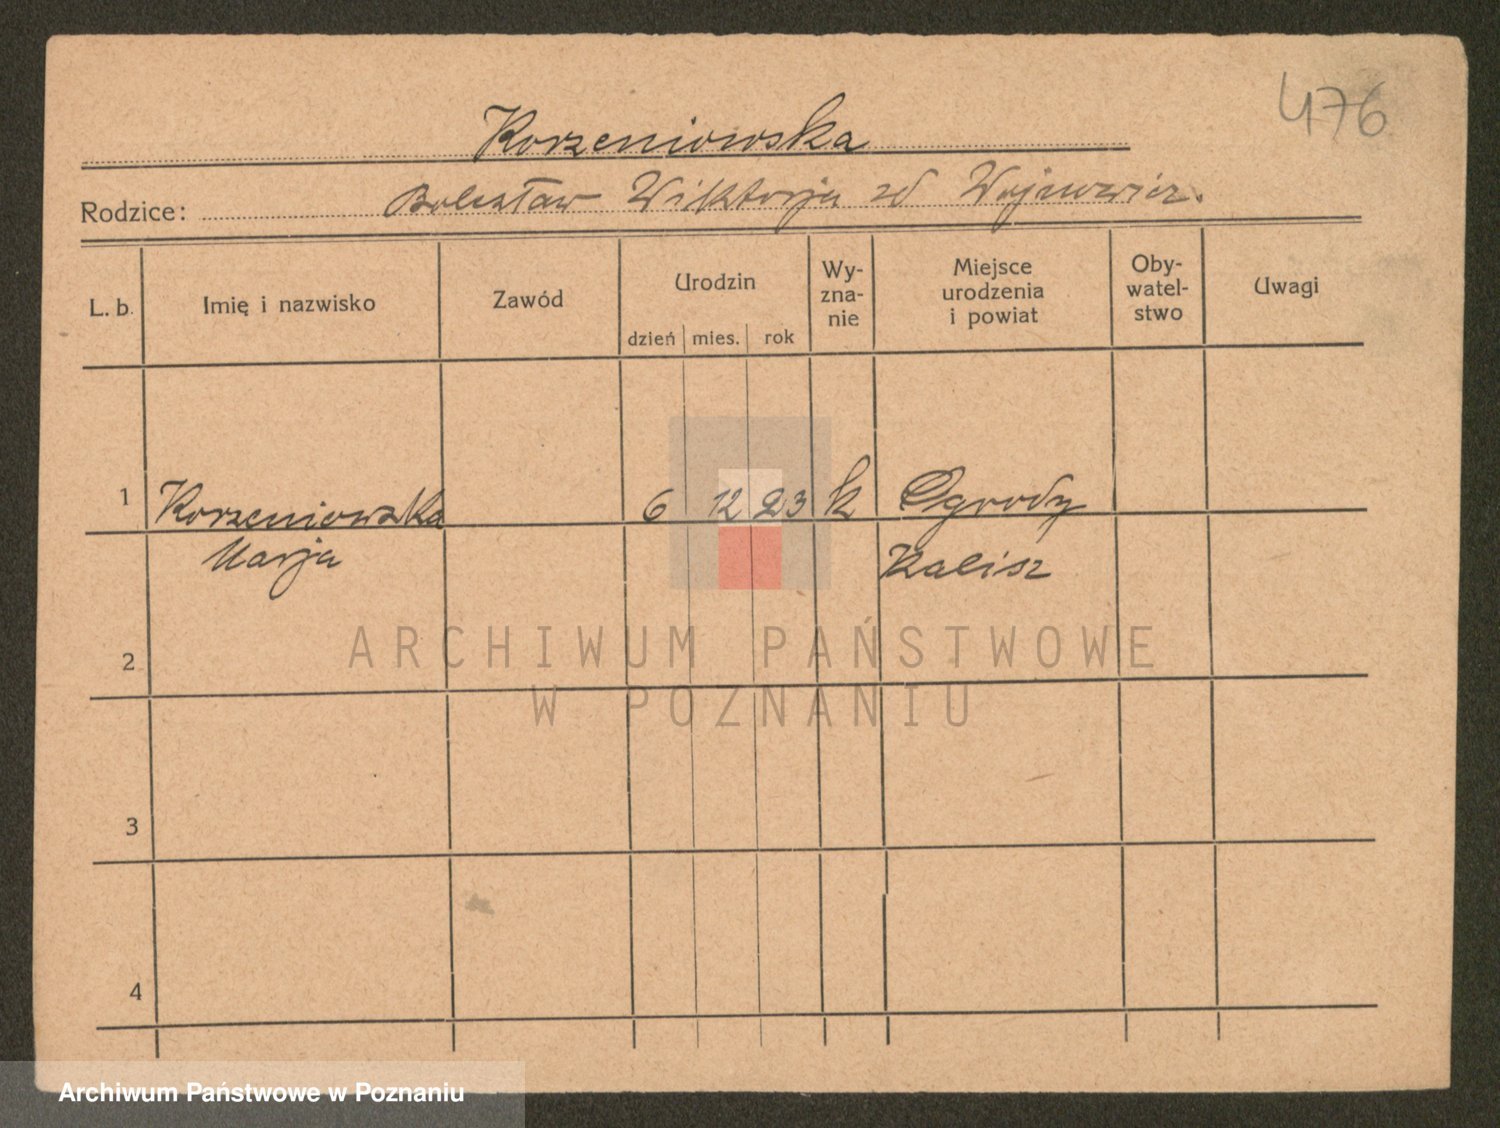 476
Korzeniowska
Rodzice: Bolesław Wiktorja zd Wojewwicz.
L. b. Imię i nazwisko Zawód Urodzin Wy-zna-nie Miejsce urodzenia i powiat Oby-watel-stwo Uwagi
dzień mies. rok
1 Korzeniowska 6 12 23 k Ogrody
Marja Kalisz
2
ARCHIWUM PAŃSTWOWE
W POZNANIU
3
4
Archiwum Państwowe w Poznaniu